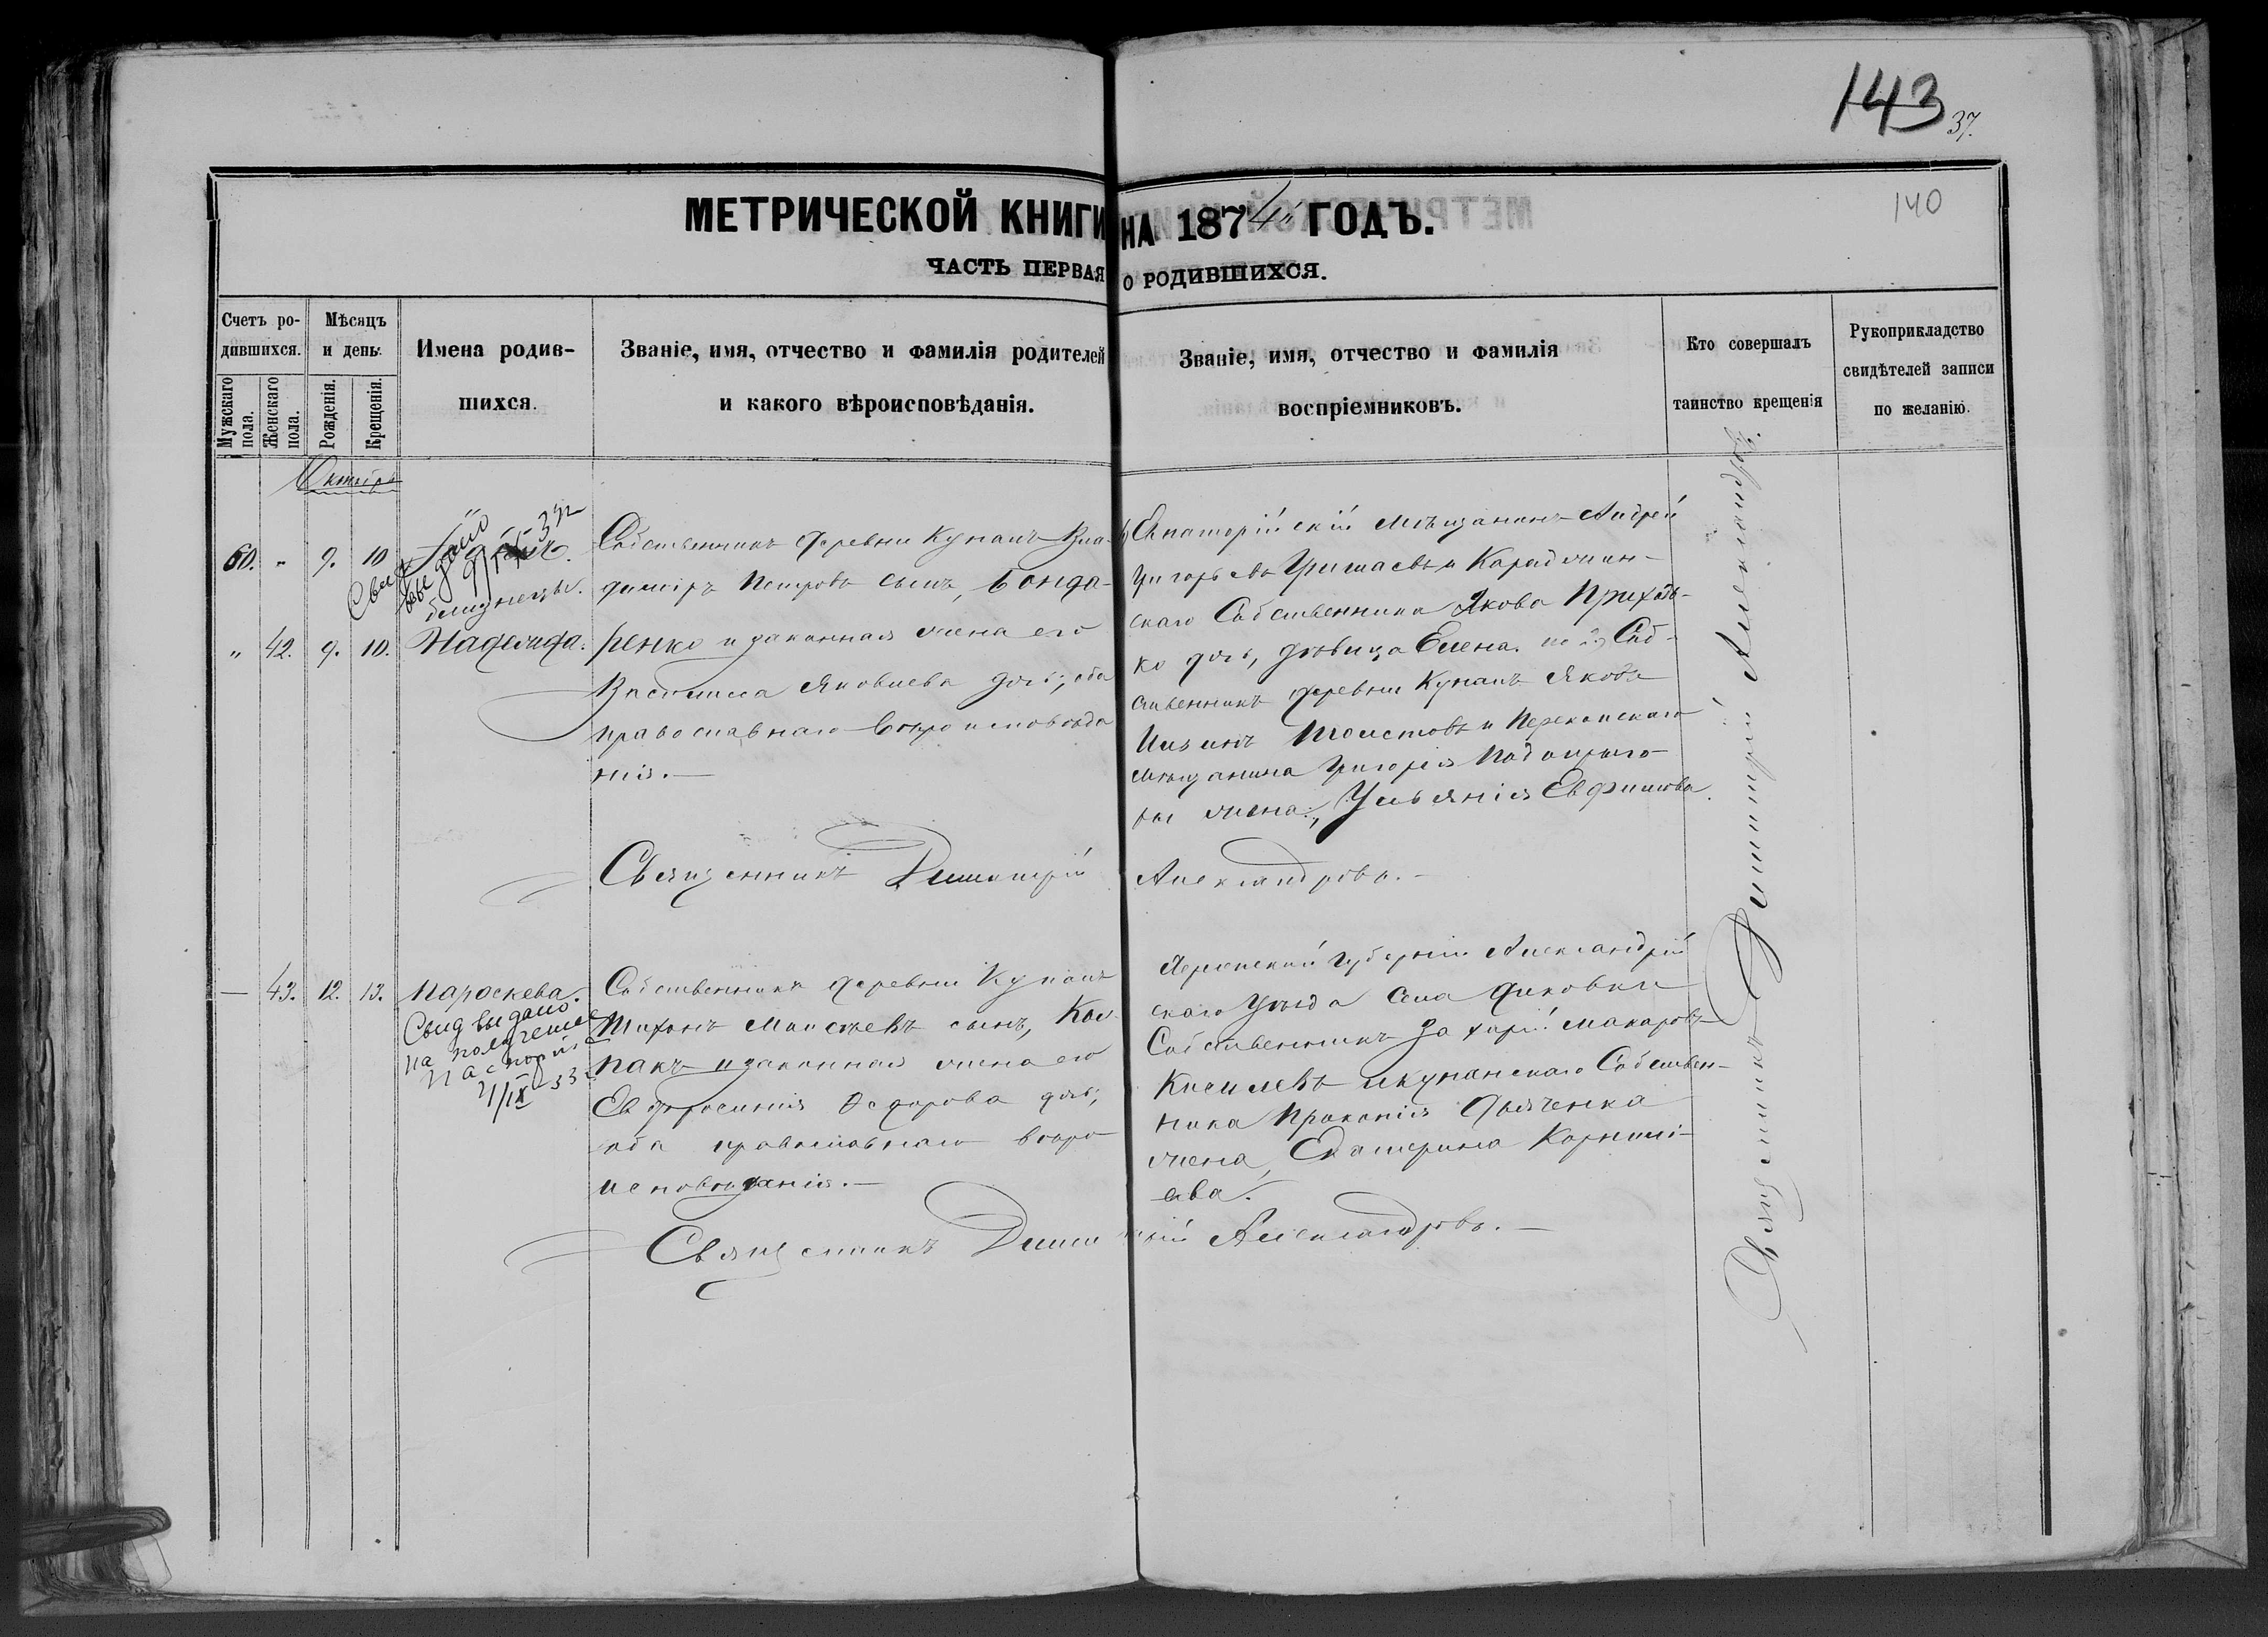 143
37.
140
МЕТРИЧЕСКОЙ КНИГИ НА 1874 ГОДЪ.
ЧАСТЬ ПЕРВАЯ О РОДИВШИХСЯ.
Счетъ ро-
дившихся.
Мужскаго пола.
Женскаго пола.
Мѣсяцъ
и день.
Рожденія.
Крещенія.
Имена родив-
шихся.
Званіе, имя, отчество и фамилія родителей
и какого вѣроисповѣданія.
Званіе, имя, отчество и фамилія
воспріемниковъ.
Кто совершалъ
таинство крещенія
Рукоприкладство
свидѣтелей записи
по желанію.
Октябрь
60. " 9. 10
близнецы.
" 42. 9. 10. Надежда.
Собственникъ деревни Кунанъ Вла-
диміръ Петровъ сынъ, Бонда-
ренко и законная жена его
Василиса Яковлева дочь, оба
православнаго вѣроисповѣда
нія.
Евпаторійскій мѣщанинъ Андрей
Григорьевъ
скаго Собственника Якова Приходь-
ко дочь, дѣвица Елена. по 2й Соб-
ственникъ деревни Кунанъ Яковъ
и Перекопскаго
мѣщанина Григорія
жена, Ульянія Евфимова.
Священникъ Димитрій Александровъ.
43. 12. 13. Параскева.
Свид выдано
на получение
паспорта
Собственникъ деревни Кунанъ
Тихонъ Моисѣевъ сынъ, Кол-
пакъ и законная жена его
Евфросинія Ѳедорова дочь,
оба православнаго вѣро
исповѣданія.
Херсонской губерніи Александрій
скаго Уѣзда Села Диковки
Собственникъ Захарій Макаровъ
Киселевъ и кунанскаго Собствен-
ника Прокопія Дьяченка
жена, Екатерина Корнилі-
ева.
Священникъ Димитрій Александровъ.
Священникъ Димитрій Александровъ.